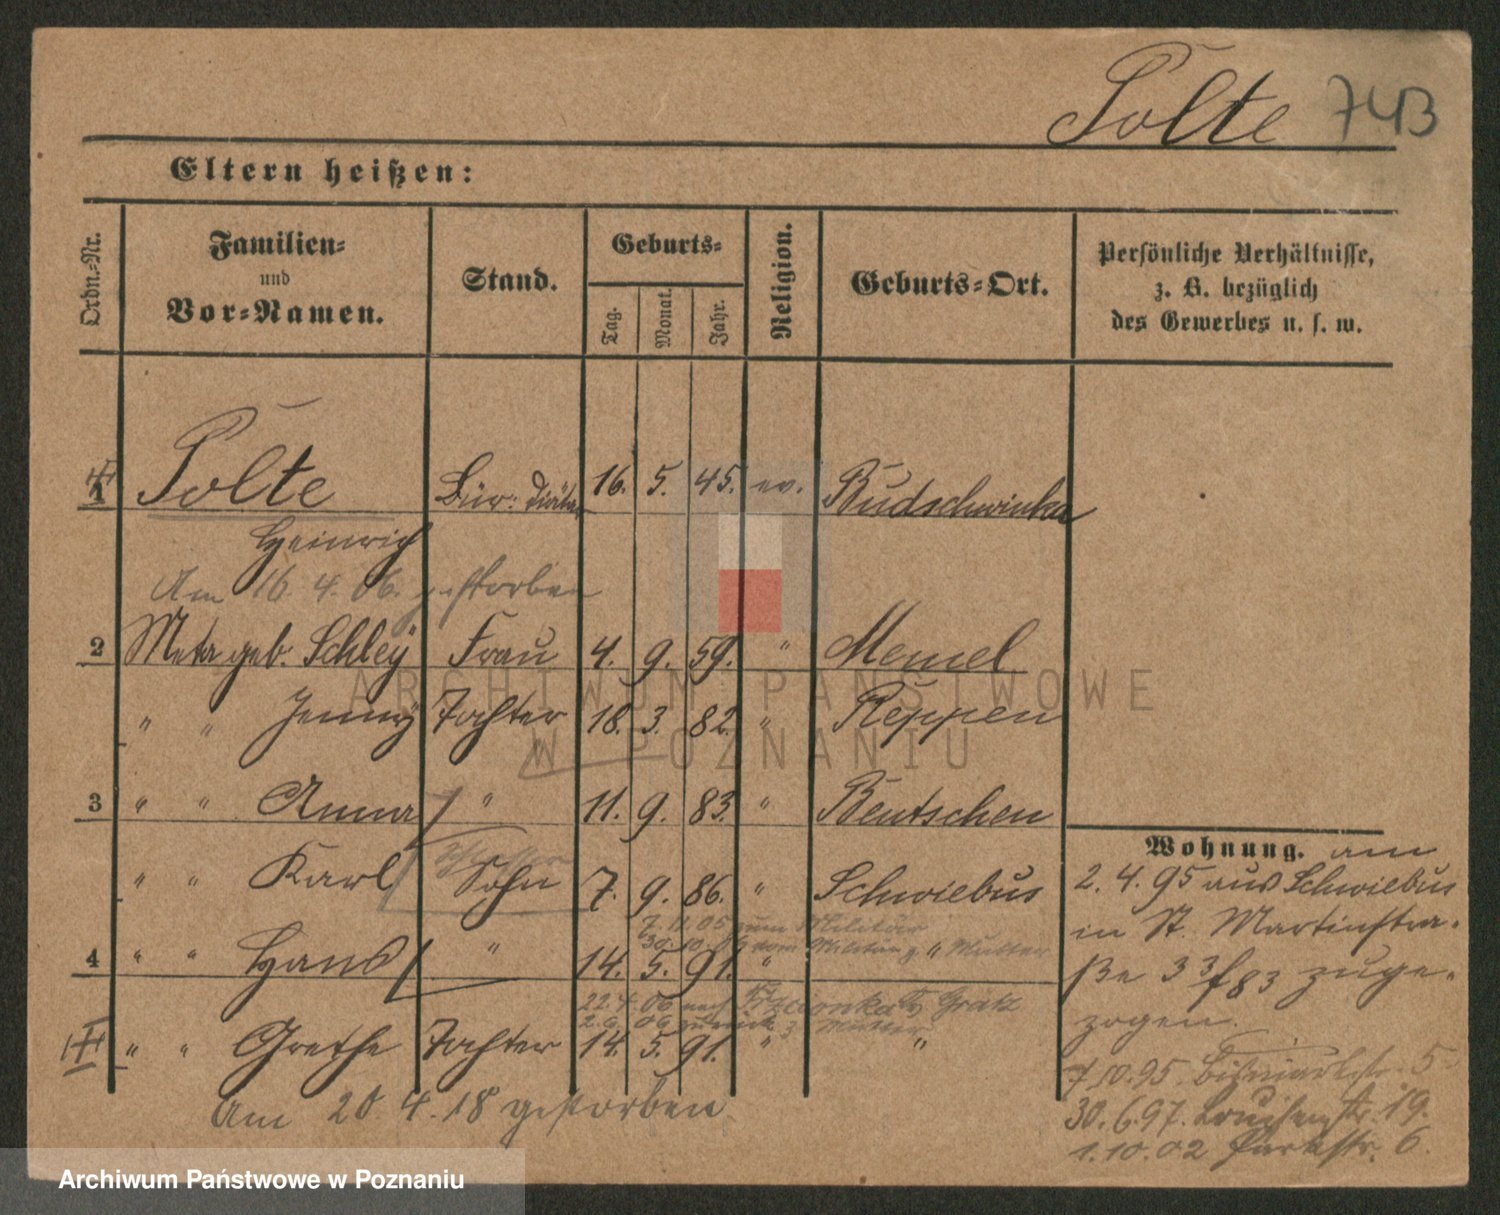 Polte 743
Eltern heißen:
Ordn.-Nr.
Familien-
und
Vor-Namen.
Stand.
Geburts-
Tag.
Monat.
Jahr.
Religion.
Geburts-Ort.
Persönliche Verhältnisse,
z. B. bezüglich
des Gewerbes u. s. w.
1 Polte Bür: Diätar 16. 5. 45. ev. Budschwinka
Heinrich
Am 16. 4. 06. gestorben
2 Meta geb. Schley Frau 4. 9. 59. " Memel
" " Jenny Tochter 18. 3. 82. " Reppen
3 " " Anna " 11. 9. 83. " Bentschen
" " Karl Sohn 7. 9. 86. " Schwiebus
7. 11. 05 zum Militär
30. 10. 06 vom Militär z. Mutter
4 " " Hans " 14. 5. 91. " "
22. 4. 06 nach Grätz
2. 6. 06 zurück z. Mutter
" " Grethe Tochter 14. 5. 91. " "
Am 20. 4. 18 gestorben.
Wohnung. am
2. 4. 95 aus Schwiebus
in St. Martinstra-
ße 33 f83 zuge-
zogen.
7.10.95. Bismarckstr. 5
30. 6. 97. Louisenstr. 19.
1. 10. 02 Parkstr. 6.
ARCHIWUM PAŃSTWOWE
W POZNANIU
Archiwum Państwowe w Poznaniu